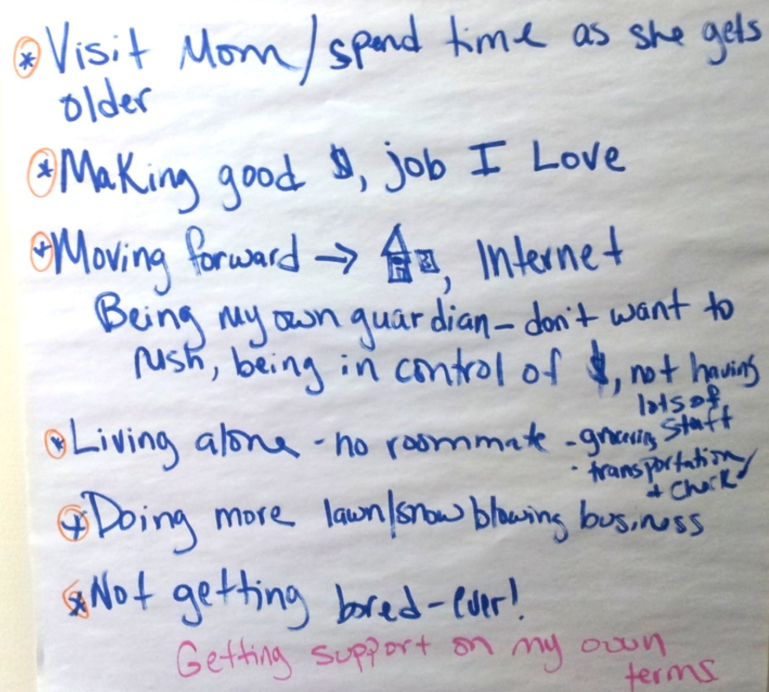 * Visit Mom/spend time as she gets
older
* Making good $, job I Love
* Moving forward → , Internet
Being my own guardian – don't want to
rush, being in control of $, not having
lots of
staff
* Living alone - no roommate - grocery
· transportation
+ check
* Doing more lawn/snow blowing business
* Not getting bored - ever!
Getting support on my own
terms